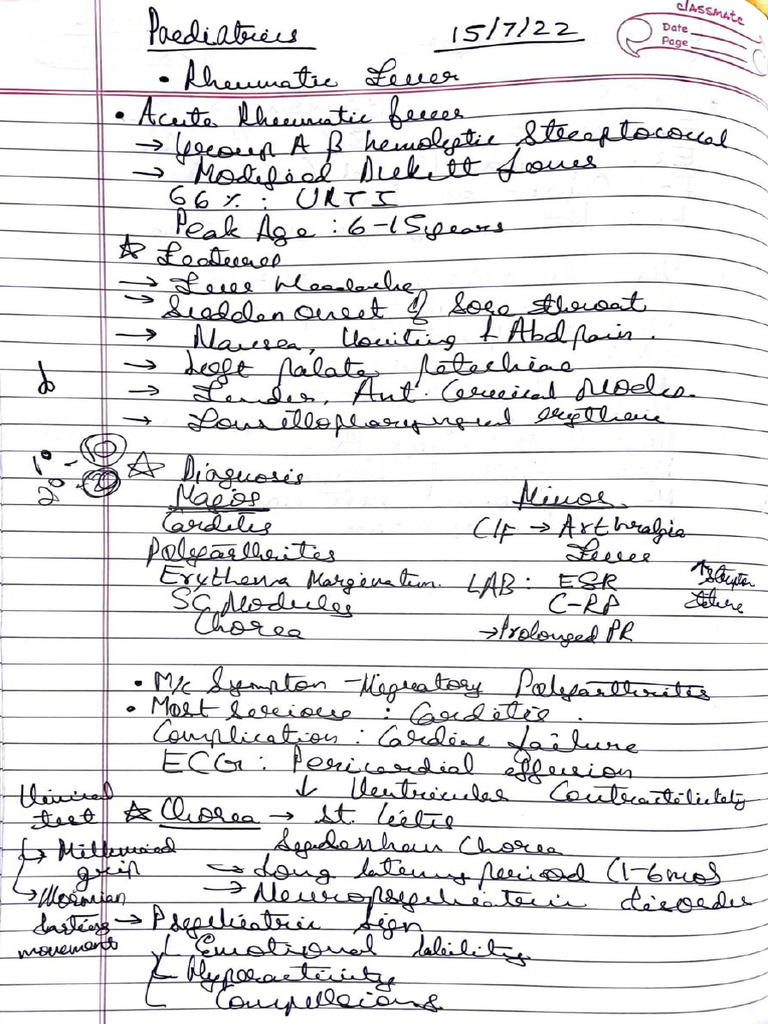 classmate
Date
Page
Paediatrics 15/7/22
• Rheumatic Fever
• Acute Rheumatic fever
→ Group A β hemolytic Streptococcal
→ Modified Duckett Jones
66 % : URTI
Peak Age : 6-15 years
☆ Features
→ Fever Headache
→ Sudden onset of Sore throat
→ Nausea, Vomiting + Abd pain.
→ Soft palate petechiae
→ Tender, Ant. Cervical Nodes.
→ Tonsillopharyngeal erythem
1° -
2° -
☆ Diagnosis
Major Minor
Carditis C/F → Arthralgia
Polyarthrites Fever
Erythema Marginatum. LAB : ESR ↑ Strepto
SC Nodules C-RP titure
Chorea → Prolonged PR
• M/c Sympton - Migratory Polyarthrites
• Most Serious : Carditis.
Complication : Cardiac failure
ECG : Pericardial effusion
↓ Ventricular Contractility
Clinical test
☆ Chorea → St. Vitus
Sydenham Chorea
→ Milkmaid grip
→ Long latency period (1-6 mos)
→ Neuropsychiatric disorder
→ Wormian darting movement
→ Psychiatric Sign
Emotional lability
Hyperactivity
Compulsions